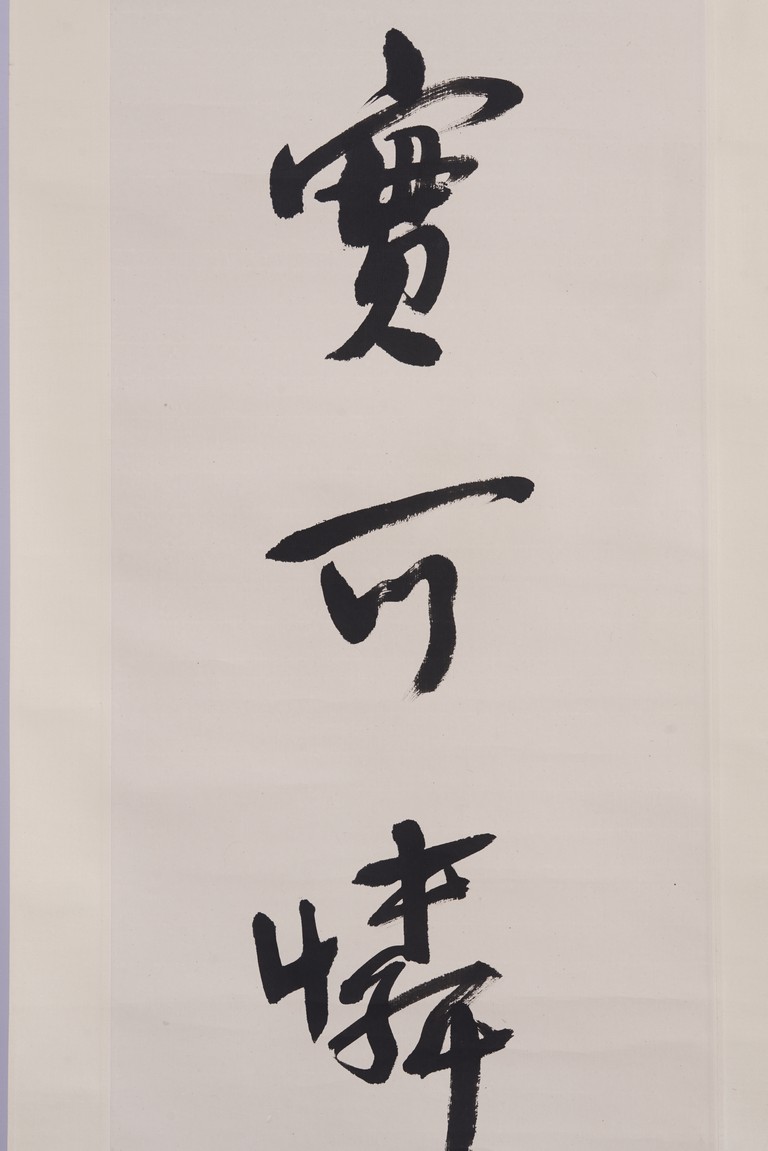 實可憐